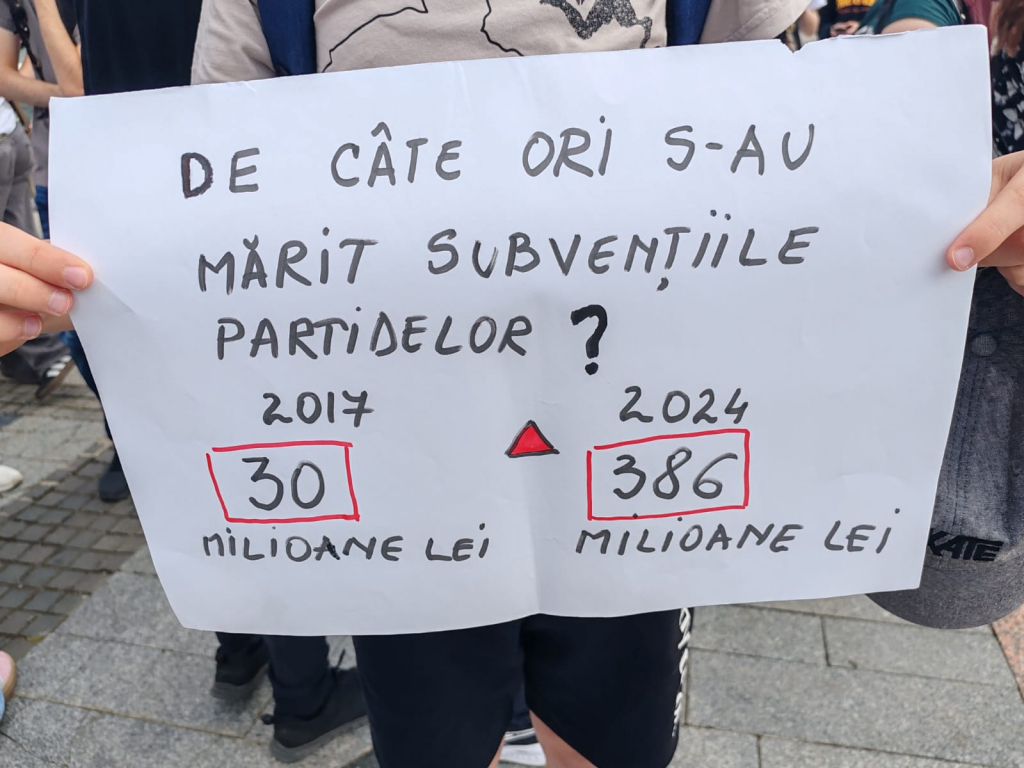 DE CÂTE ORI S-AU
MĂRIT SUBVENȚIILE
PARTIDELOR ?
2017 2024
30 386
MILIOANE LEI MILIOANE LEI
KATE